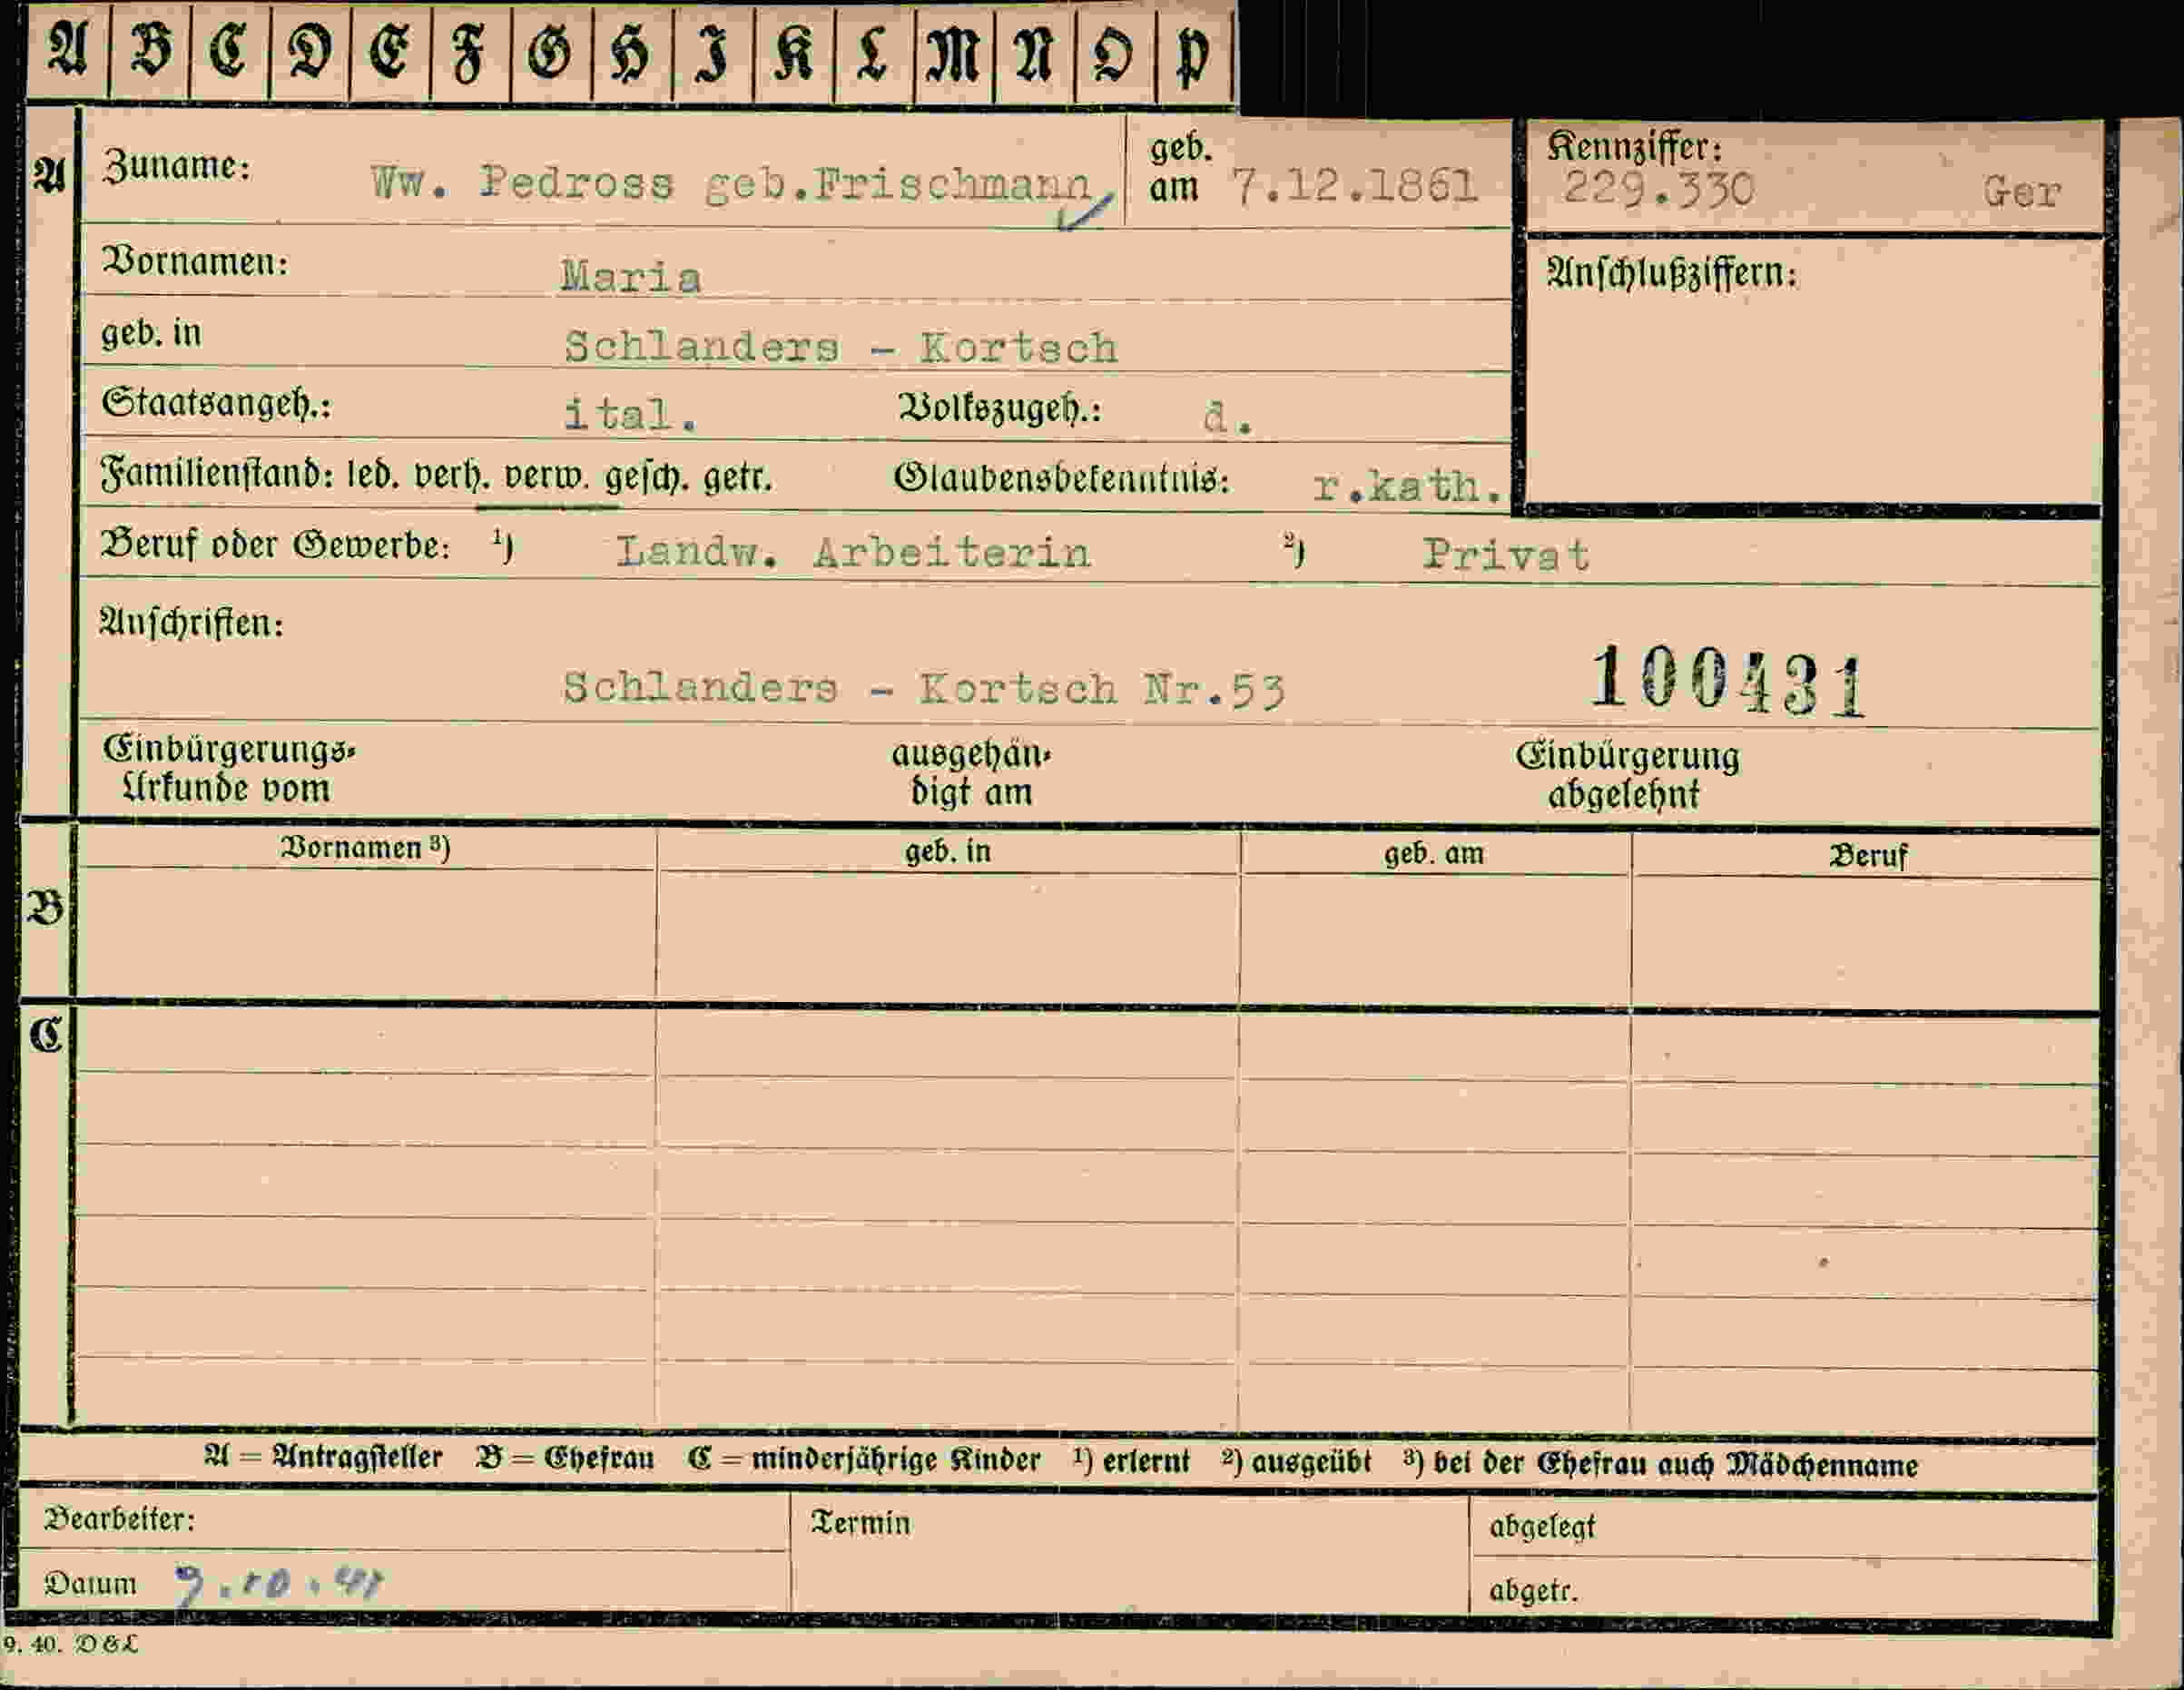 A B C D E F G H I K L M N O P
A Zuname: Ww. Pedross geb.Frischmann geb. am 7.12.1861 Kennziffer: 229.330 Ger
Vornamen: Maria Anschlußziffern:
geb. in Schlanders - Kortsch
Staatsangeh.: ital. Volkszugeh.: d.
Familienstand: led. verh. verw. gesch. getr. Glaubensbekenntnis: r.kath.
Beruf oder Gewerbe: ¹) Landw. Arbeiterin ²) Privat
Anschriften:
Schlanders - Kortsch Nr.53 100431
Einbürgerungs-
Urkunde vom
ausgehän-
digt am
Einbürgerung
abgelehnt
B Vornamen ³) geb. in geb. am Beruf
C
A = Antragsteller B = Ehefrau C = minderjährige Kinder ¹) erlernt ²) ausgeübt ³) bei der Ehefrau auch Mädchenname
Bearbeiter: Termin abgelegt
Datum 9.10.41 abgetr.
9. 40. D & L